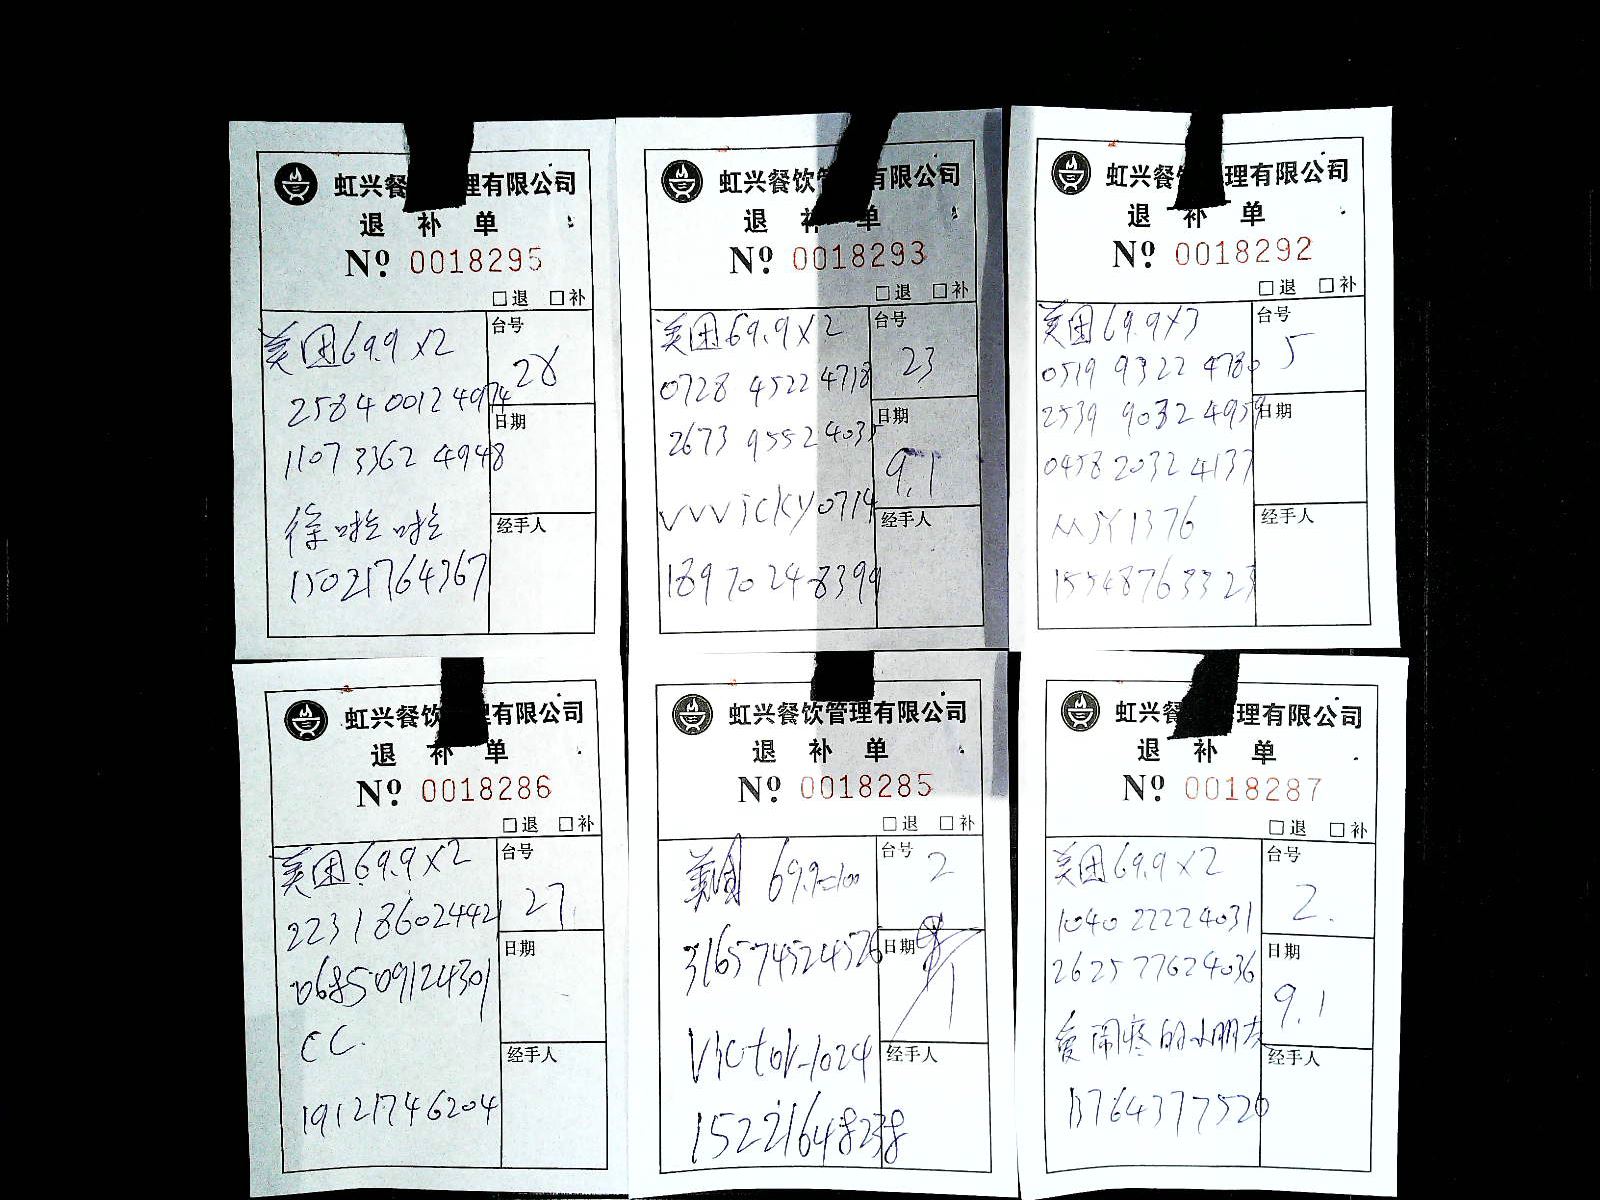 虹兴餐 理有限公司
退 补 单
Nº 0018295
□退 □补
美团69.9×2
台号
28
2584 0012 4974
日期
1107 3362 4948
徐啦啦
经手人
15021764367
虹兴餐饮管 有限公司
退 补 单
Nº 0018293
□退 □补
美团69.9×2
台号
23
0728 4522 4718
日期
2673 9552 4035
9.1
vvvicky0714
经手人
18970248399
虹兴餐饮 理有限公司
退 补 单
Nº 0018292
□退 □补
美团69.9×3
台号
5
0519 9322 4780
2539 9032 4959
日期
0458 2032 4137
MJY1376
经手人
15548763323
虹兴餐饮 理有限公司
退 补 单
Nº 0018286
□退 □补
美团69.9×2
台号
27.
2231 8602 4421
日期
068509124301
CC.
经手人
19121746204
虹兴餐饮管理有限公司
退 补 单
Nº 0018285
□退 □补
美团 69.9=100
台号
2
316574524526
日期
Victor-1024
经手人
15221648238
虹兴餐 管理有限公司
退 补 单
Nº 0018287
□退 □补
美团69.9×2
台号
2.
1040 2222 4031
日期
2625 7762 4036
9.1
爱闹疼的小朋友
经手人
13764377520